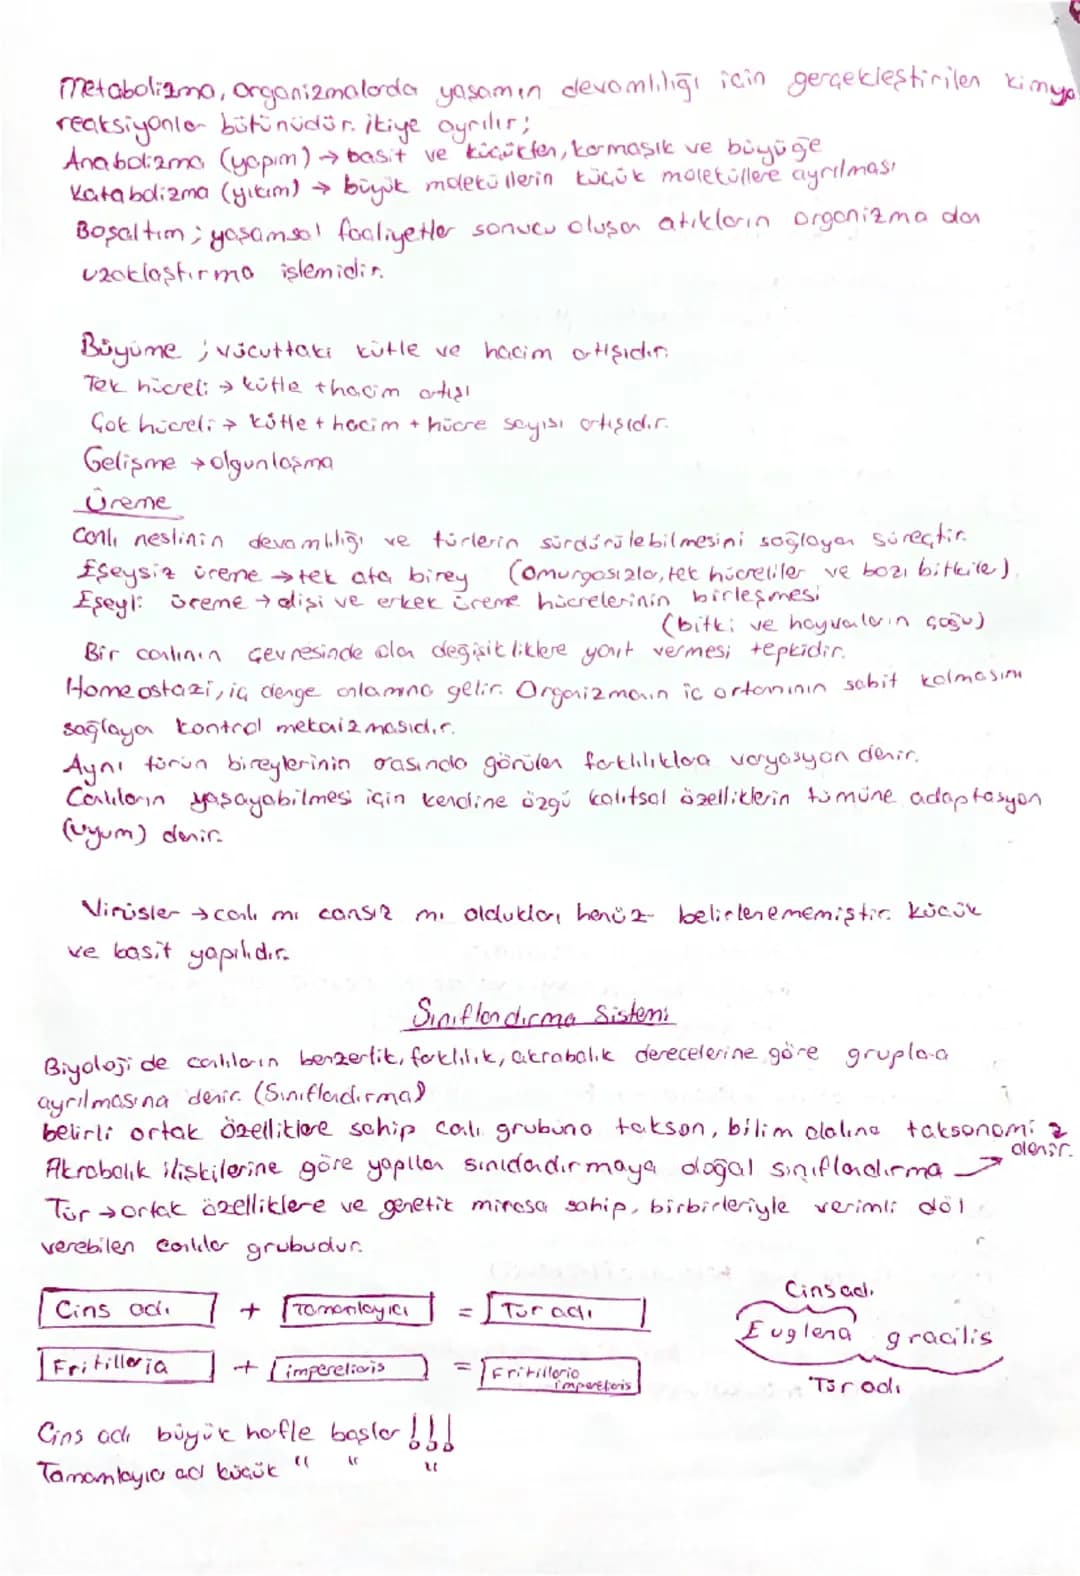 Metabolizma, organizmalarda yaşamın devamlılığı için gerçekleştirilen kimya
reaksiyonlar bütünüdür. ikiye ayrılır;
Anabolizma (yapım) → basit ve küçükten, karmaşık ve büyüğe
Katabolizma (yıkım) → büyük moleküllerin küçük moleküllere ayrılması
Boşaltım ; yaşamsal faaliyetler sonucu oluşan atıkların organizma dan
uzaklaştırma işlemidir.
Büyüme ; vücuttaki kütle ve hacim artışıdır.
Tek hücreli → kütle + hacim artışı
Çok hücreli → kütle + hacim + hücre sayısı artışıdır.
Gelişme → olgunlaşma
Üreme
Canlı neslinin devamlılığı ve türlerin sürdürülebilmesini sağlayan süreçtir.
Eşeysiz üreme → tek ata birey (Omurgasızlar, tek hücreliler ve bazı bitkiler)
Eşeyli üreme → dişi ve erkek üreme hücrelerinin birleşmesi
(bitki ve hayvanların çoğu)
Bir canlının çevresinde olan değişikliklere yanıt vermesi tepkidir.
Homeostazi, iç denge anlamına gelir. Organizmanın iç ortamının sabit kalmasını
sağlayan kontrol mekaizmasıdır.
Aynı türün bireylerinin arasında görülen farklılıklara varyasyon denir.
Canlıların yaşayabilmesi için kendine özgü kalıtsal özelliklerin tümüne adaptasyon
(uyum) denir.
Virüsler → canlı mı cansız mı oldukları henüz belirlenememiştir. Küçük
ve basit yapılıdır.
Sınıflandırma Sistemi
Biyoloji de canlıların benzerlik, farklılık, akrabalık derecelerine göre gruplara
ayrılmasına denir. (Sınıflandırma)
belirli ortak özelliklere sahip canlı grubuna takson, bilim dalına taksonomi
denir.
Akrabalık ilişkilerine göre yapılan sınıdandırmaya doğal sınıflandırma
Tür → ortak özelliklere ve genetik mirasa sahip, birbirleriyle verimli döl
verebilen canlılar grubudur.
Cins adı + Tamamlayıcı = Tür adı
Fritilleria + imperelioris = Fritillerio
imperelioris
Cins adı
Euglena gracilis
Tür adı
Cins adı büyük harfle başlar !!!
Tamamlayıcı adı küçük " " "